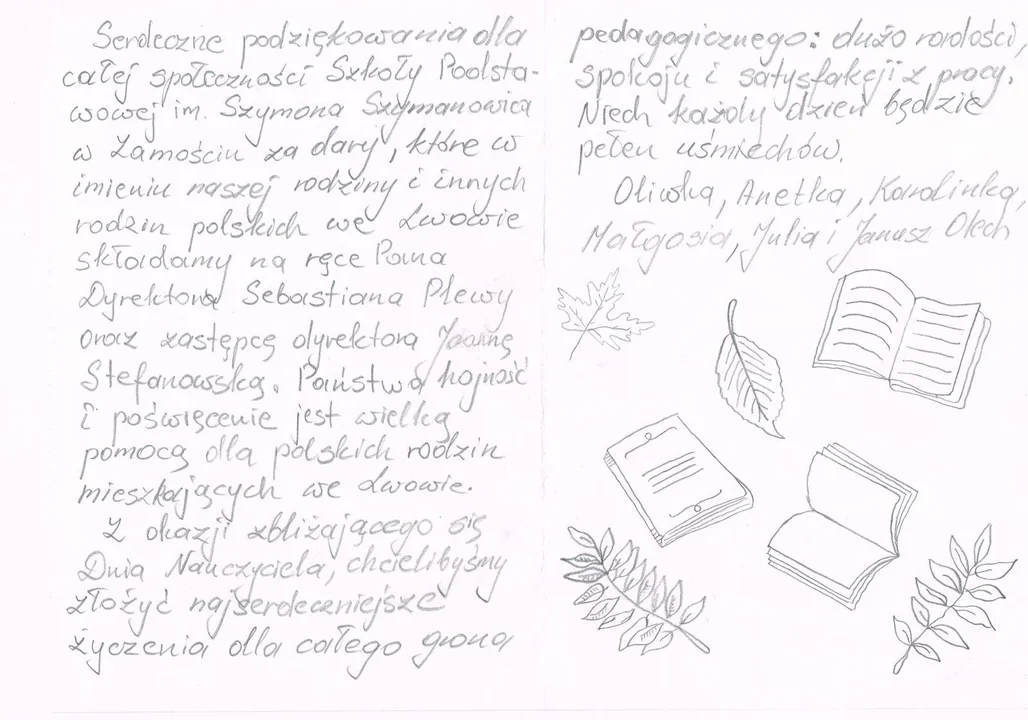 Serdeczne podziękowania dla
całej społeczności Szkoły Podsta-
wowej im. Szymona Szymanowica
w Zamościu za dary, które w
imieniu naszej rodziny i innych
rodzin polskich we Lwowie
składamy na ręce Pana
Dyrektora Sebastiana Plewy
oraz zastępcę dyrektora Joannę
Stefanowską. Państwa hojność
i poświęcenie jest wielką
pomocą dla polskich rodzin
mieszkających we Lwowie.
Z okazji zbliżającego się
Dnia Nauczyciela, chcielibyśmy
złożyć najserdeczniejsze
życzenia dla całego grona
pedagogicznego: dużo radości,
spokoju i satysfakcji z pracy.
Niech każdy dzień będzie
pełen uśmiechów.
Oliwka, Anetka, Karolinka,
Małgosia, Julia i Janusz Olech